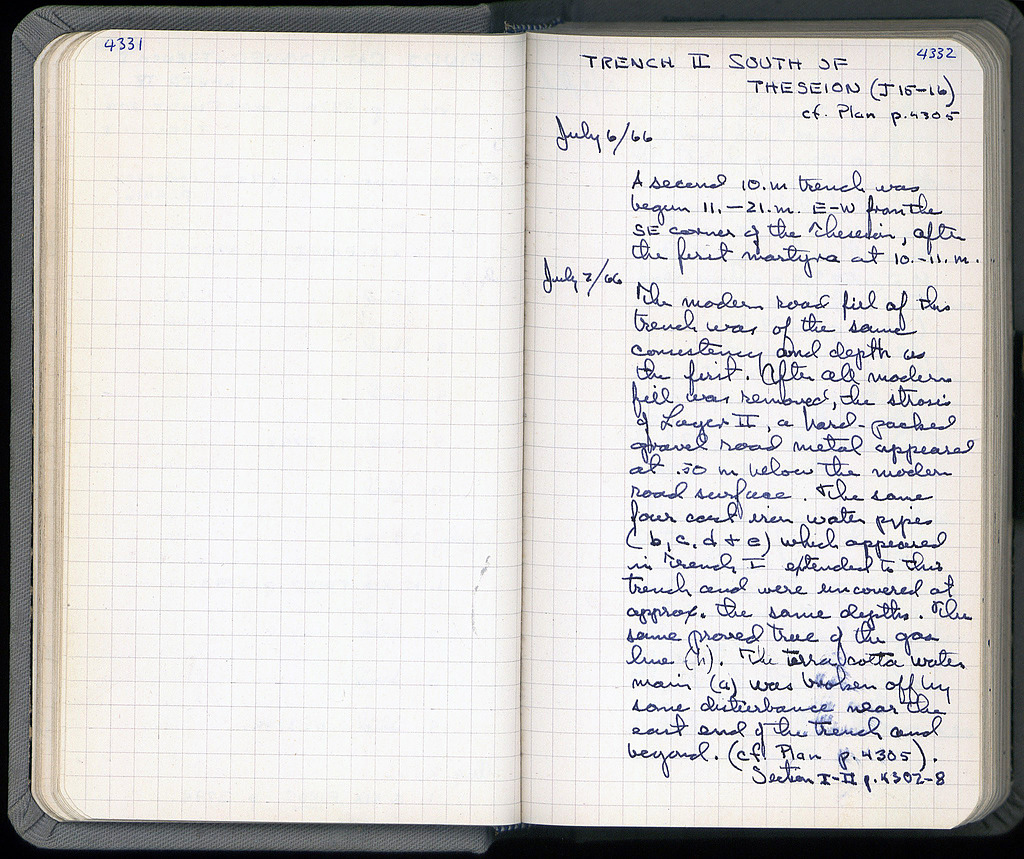 4331
4332
TRENCH II SOUTH OF
THESEION (J 15-16)
cf. Plan p.4305
July 6/66
A second 10.m trench was
begun 11.–21.m. E-W from the
SE corner of the Theseion, after
the first martyra at 10.-11.m.
July 7/66
The modern road fill of this
trench was of the same
consistency and depth as
the first. After all modern
fill was removed, the strosis
of Layer II, a hard-packed
gravel road metal appeared
at .50 m below the modern
road surface. The same
four cast iron water pipes
(b, c, d + e) which appeared
in Trench I extended to this
trench and were uncovered at
approx. the same depths. The
same proved true of the gas
line (h). The terra cotta water
main (a) was broken off by
some disturbance near the
east end of the trench and
beyond. (cf. Plan p.4305).
Section I-II p.4302-8